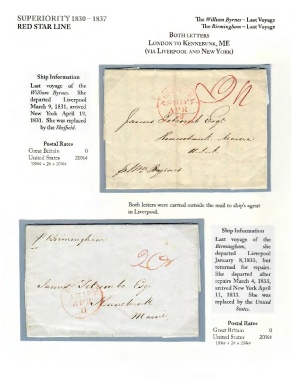 SUPERIORITY 1830 – 1837
RED STAR LINE
The William Byrnes – Last Voyage
The Birmingham – Last Voyage
BOTH LETTERS
LONDON TO KENNEBUNK, ME
(VIA LIVERPOOL AND NEW YORK)
Ship Information
Last voyage of the
William Byrnes. She
departed Liverpool
March 9, 1831, arrived
New York April 19,
1831. She was replaced
by the Sheffield.
Postal Rates
Great Britain 0
United States 20¾¢
APR
James Titcomb Esqr
Kennebunk Maine
U.S.A.
Both letters were carried outside the mail to ship's agent
in Liverpool.
Ship Information
Last voyage of the
Birmingham, she
departed Liverpool
January 8, 1833, but
returned for repairs. She
departed after
repairs March 4, 1833,
arrived New York April
11, 1833. She was
replaced by the United
States.
Postal Rates
Great Britain 0
United States 20¾¢
p Birmingham
James Titcomb Esq
Kennebunk
Maine